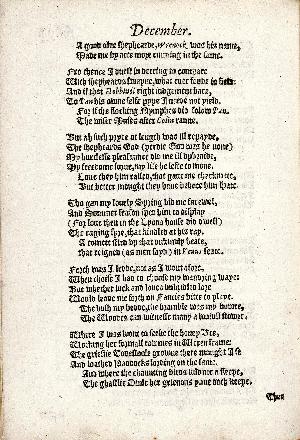 December.
A good olde shephearde, Wrenock was his name,
Made me by arte more cunning in the same.
Fro thence I durst in derring to compare
With shepheards swayne, what ever fedde in field:
And if that Hobbinol right iudgement bare,
To Pan his owne selfe pype I neede not yeld.
For if the flocking Nymphes did folow Pan,
The wiser Muses after Colin ranne.
But ah such pryde at length was ill repayde,
The shepheards God (perdie God was he none)
My hurtlesse pleasaunce did me ill vpbraide,
My freedome lorne, my life he lefte to mone.
Love they him called, that gave me checkmate,
But better mought they have behote him Hate.
Tho gan my lovely Spring bid me farewel,
And Sommer season sped him to display
(For love then in the Lyons house did dwell)
The raging fyre, that kindled at his ray.
A comett stird up that unkindly heate,
that reigned (as men sayd) in Venus seate.
Forth was I ledde, not as I wont afore,
When choise I had to choose my wandring waye:
But whether luck and loves unbridled lore
Would leade me forth on Fancies bitte to playe.
The bush my bedde, the bramble was my bowre,
The Woodes can witnesse many a wofull stowre.
Where I was wont to seeke the honey Bee,
Working her formall rowmes in Wexen frame:
The grieslie Todestoole growne there mought I se
And loathed Paddocks lording on the same.
And where the chaunting birds luld me a sleepe,
The ghastlie Owle her grievous ynne doth keepe.
Then